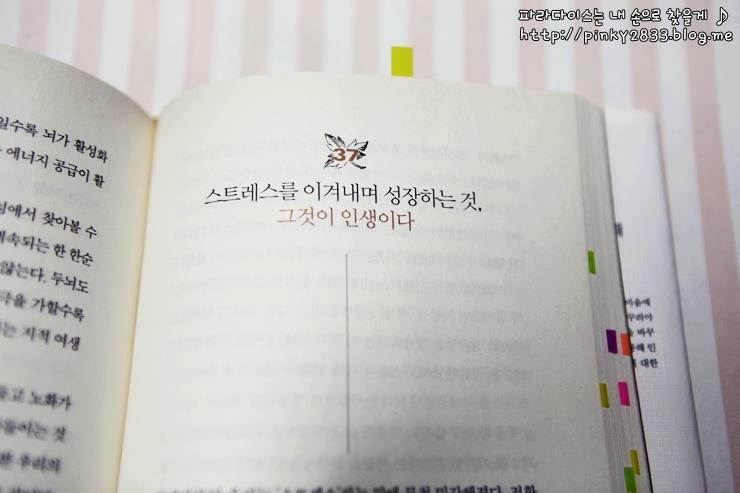 파라다이스는 내 손으로 찾을게 ♪
http://pinky2833.blog.me
일수록 뇌가 활성화
에너지 공급이 활
에서 찾아볼 수
속되는 한 한순
않는다. 두뇌도
극을 가할수록
는 지적 여생
들고 노화가
들이는 것
우리의
37
스트레스를 이겨내며 성장하는 것,
그것이 인생이다
마음에
꾸리아
바꾸
인
대한